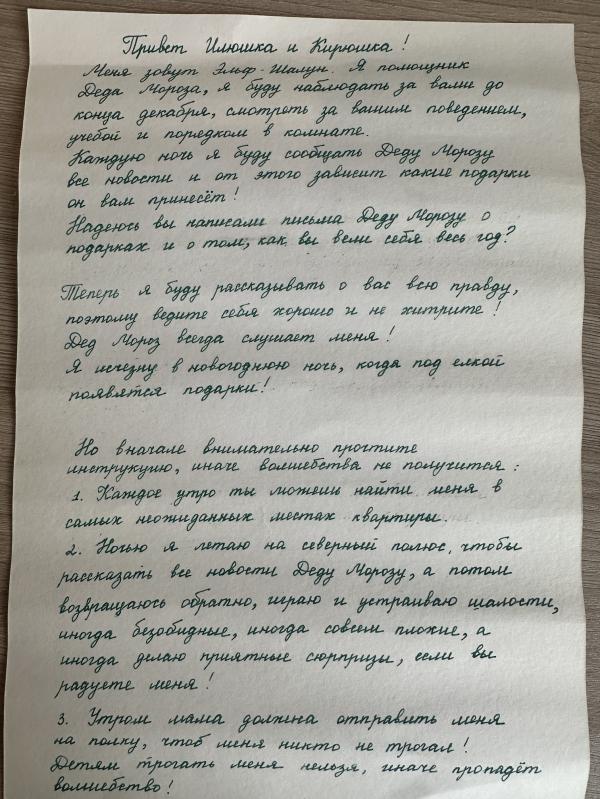 Привет Илюшка и Кирюшка!
Меня зовут Эльф-Шалун. Я помощник
Деда Мороза, я буду наблюдать за вами до
конца декабря, смотреть за вашим поведением,
учебой и порядком в комнате.
Каждую ночь я буду сообщать Деду Морозу
все новости и от этого зависит какие подарки
он вам принесёт!
Надеюсь вы написали письма Деду Морозу о
подарках и о том, как вы вели себя весь год?
Теперь я буду рассказывать о вас всю правду,
поэтому ведите себя хорошо и не хитрите!
Дед Мороз всегда слушает меня!
Я исчезну в новогоднюю ночь, когда под елкой
появятся подарки!
Но вначале внимательно прочтите
инструкцию, иначе волшебства не получится:
1. Каждое утро ты можешь найти меня в
самых неожиданных местах квартиры.
2. Ночью я летаю на северный полюс, чтобы
рассказать все новости Деду Морозу, а потом
возвращаюсь обратно, играю и устраиваю шалости,
иногда безобидные, иногда совсем плохие, а
иногда делаю приятные сюрпризы, если вы
радуете меня!
3. Утром мама должна отправить меня
на полку, чтоб меня никто не трогал!
Детям трогать меня нельзя, иначе пропадёт
волшебство!